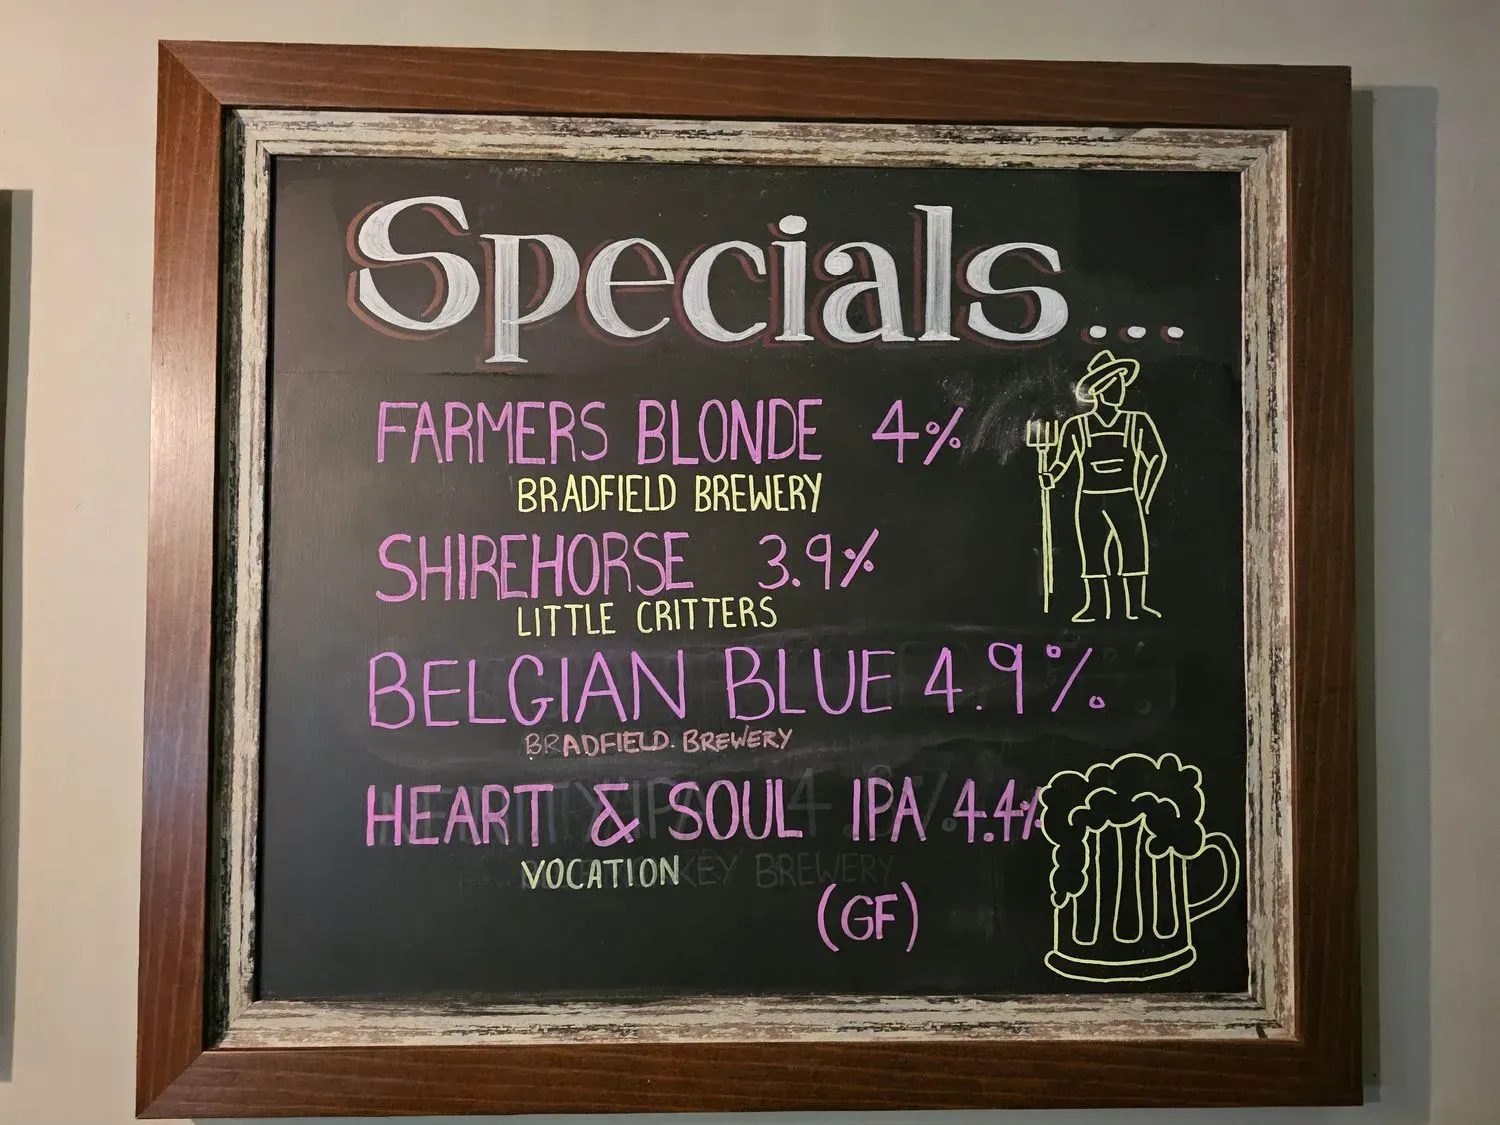 Specials...
FARMERS BLONDE 4%
BRADFIELD BREWERY
SHIREHORSE 3.9%
LITTLE CRITTERS
BELGIAN BLUE 4.9%
BRADFIELD BREWERY
HEART & SOUL IPA 4.4%
VOCATION
(GF)